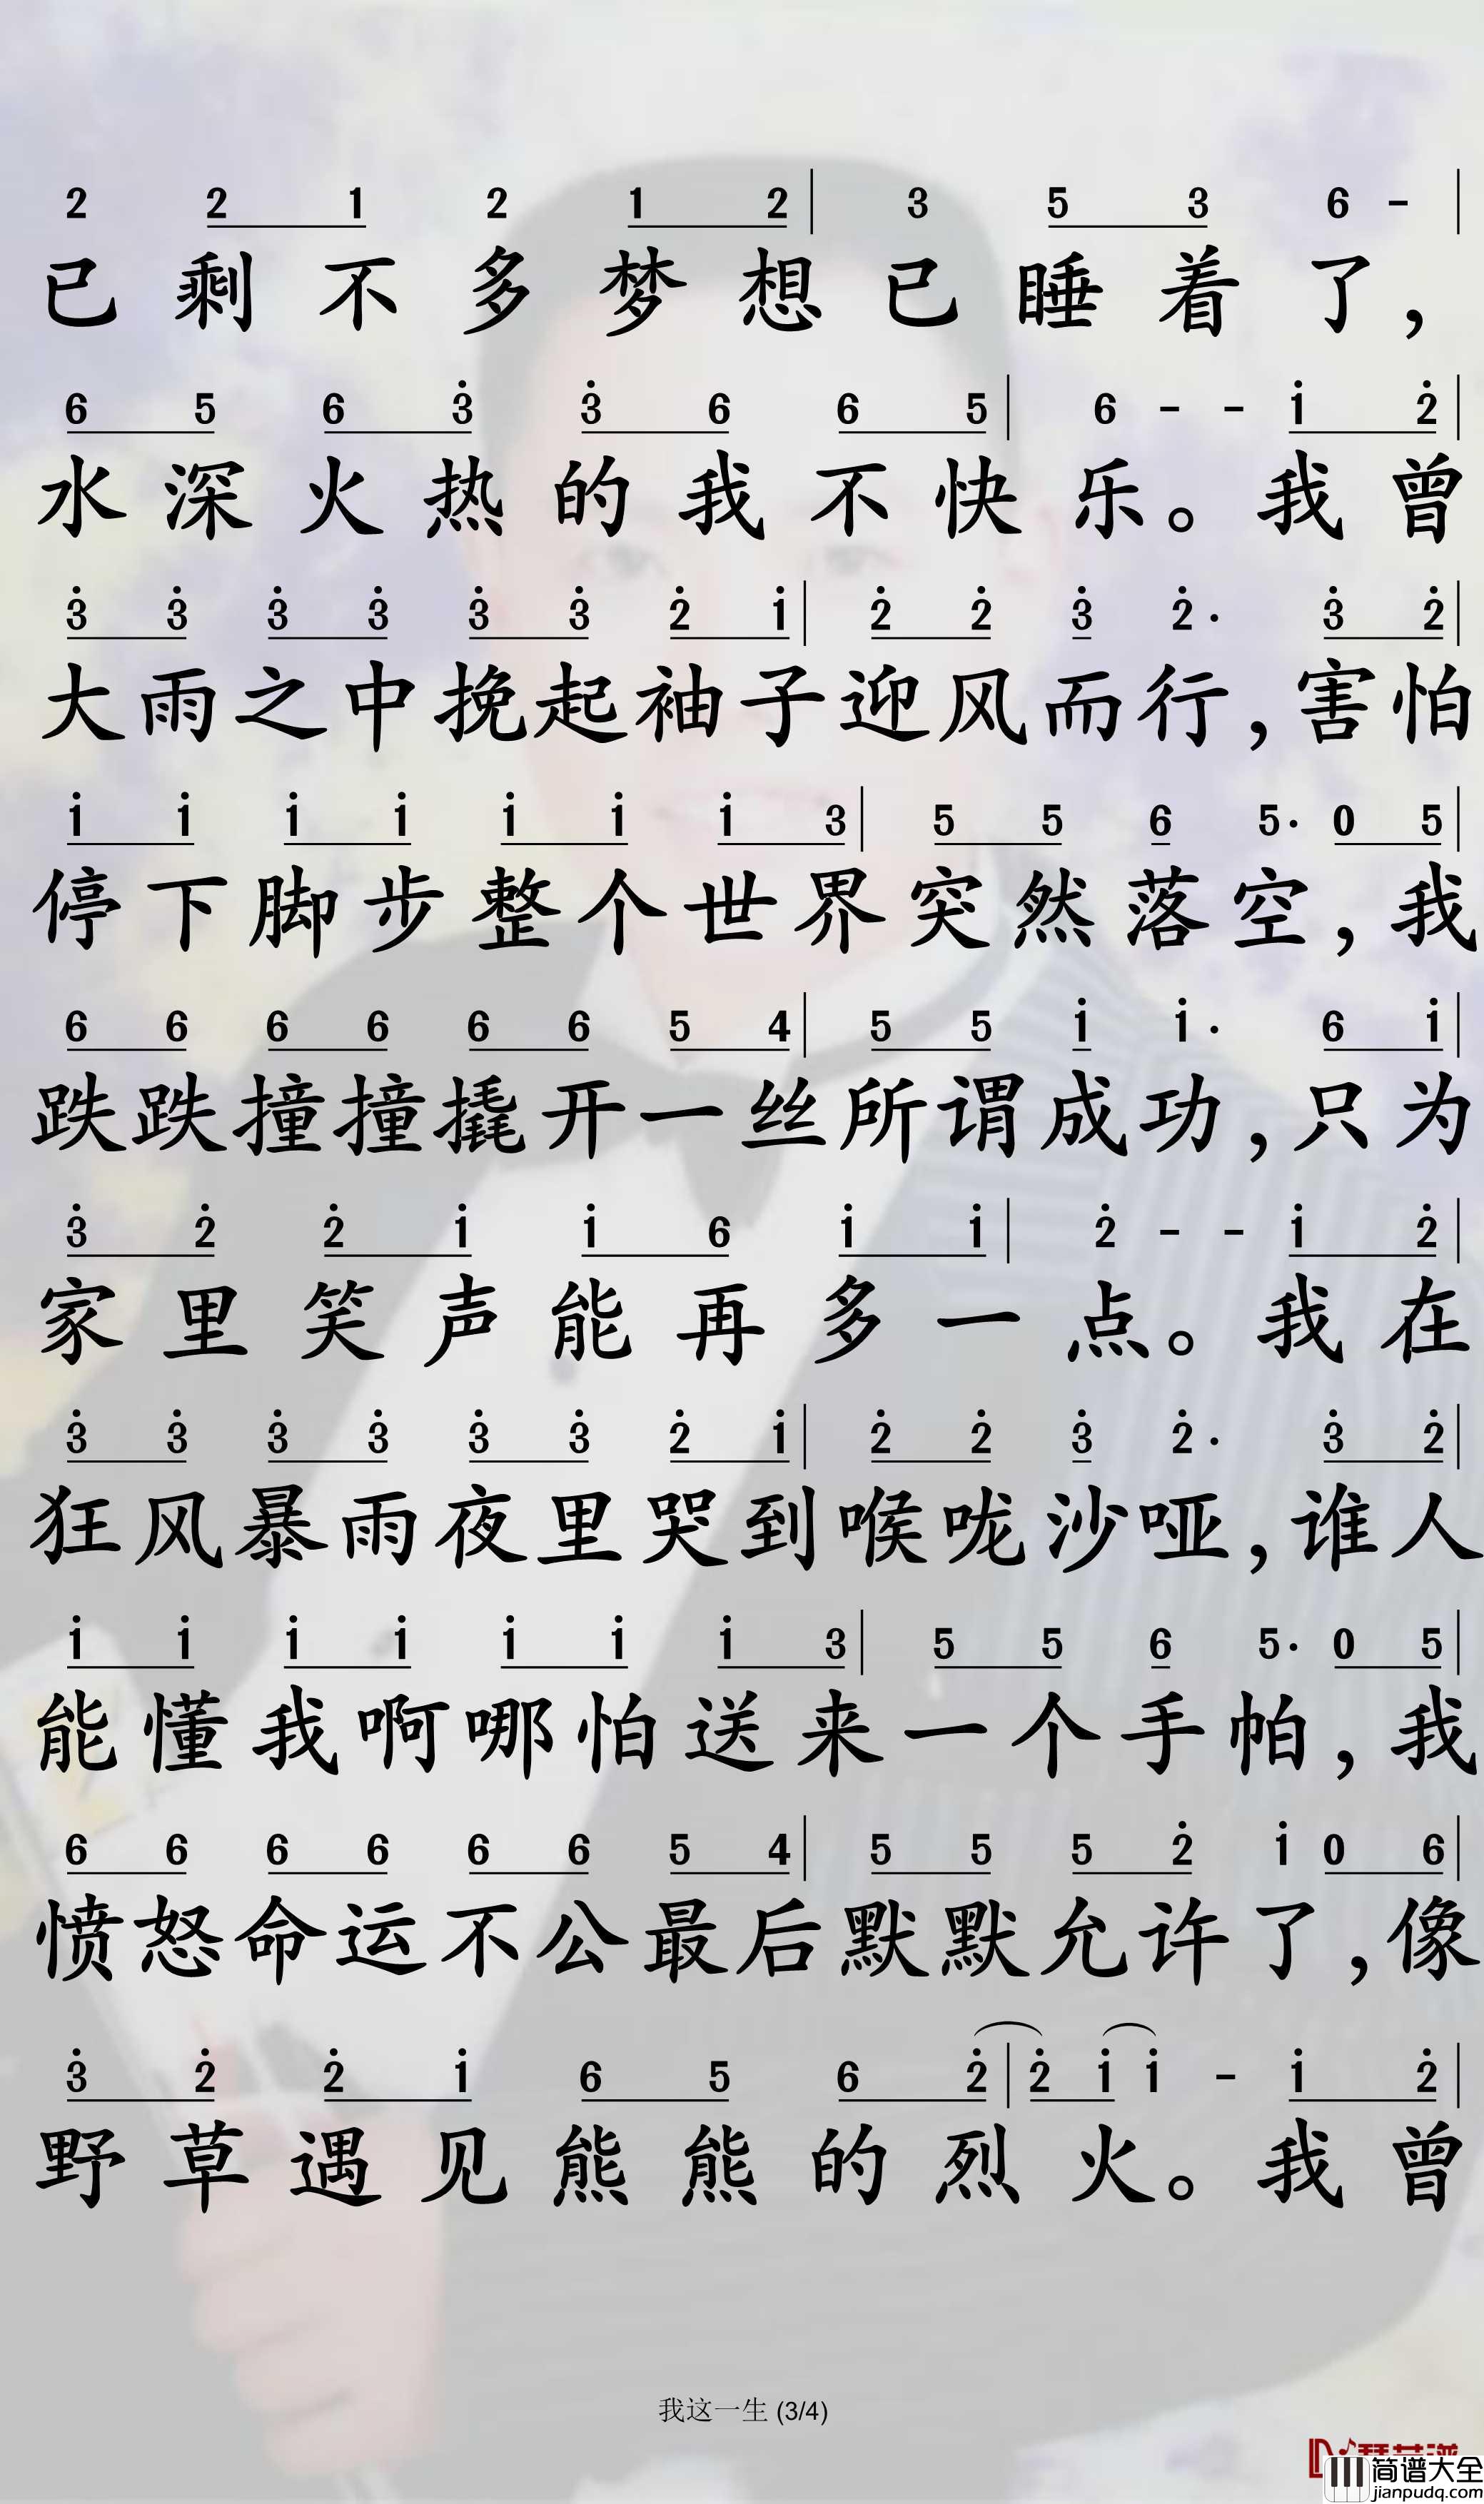 2 2 1 2 1 2 | 3 5 3 6 - |
已剩不多梦想已睡着了，
6 5 6 3̇ 3̇ 6 6 5 | 6 - - 1̇ 2̇ |
水深火热的我不快乐。我曾
3̇ 3̇ 3̇ 3̇ 3̇ 3̇ 2̇ 1̇ | 2̇ 2̇ 3̇ 2̇· 3̇ 2̇ |
大雨之中挽起袖子迎风而行，害怕
1̇ 1̇ 1̇ 1̇ 1̇ 1̇ 1̇ 3 | 5 5 6 5· 0 5 |
停下脚步整个世界突然落空，我
6 6 6 6 6 6 5 4 | 5 5 1̇ 1̇· 6 1̇ |
跌跌撞撞撬开一丝所谓成功，只为
3̇ 2̇ 2̇ 1̇ 1̇ 6 1̇ 1̇ | 2̇ - - 1̇ 2̇ |
家里笑声能再多一点。我在
3̇ 3̇ 3̇ 3̇ 3̇ 3̇ 2̇ 1̇ | 2̇ 2̇ 3̇ 2̇· 3̇ 2̇ |
狂风暴雨夜里哭到喉咙沙哑，谁人
1̇ 1̇ 1̇ 1̇ 1̇ 1̇ 1̇ 3 | 5 5 6 5· 0 5 |
能懂我啊哪怕送来一个手帕，我
6 6 6 6 6 6 5 4 | 5 5 5 2̇ 1̇ 0 6 |
愤怒命运不公最后默默允许了，像
3̇ 2̇ 2̇ 1̇ 6 5 6 2̇ | 2̇ 1̇ 1̇ - 1̇ 2̇ |
野草遇见熊熊的烈火。我曾
我这一生 (3/4)
简谱大全
jianpudq.com